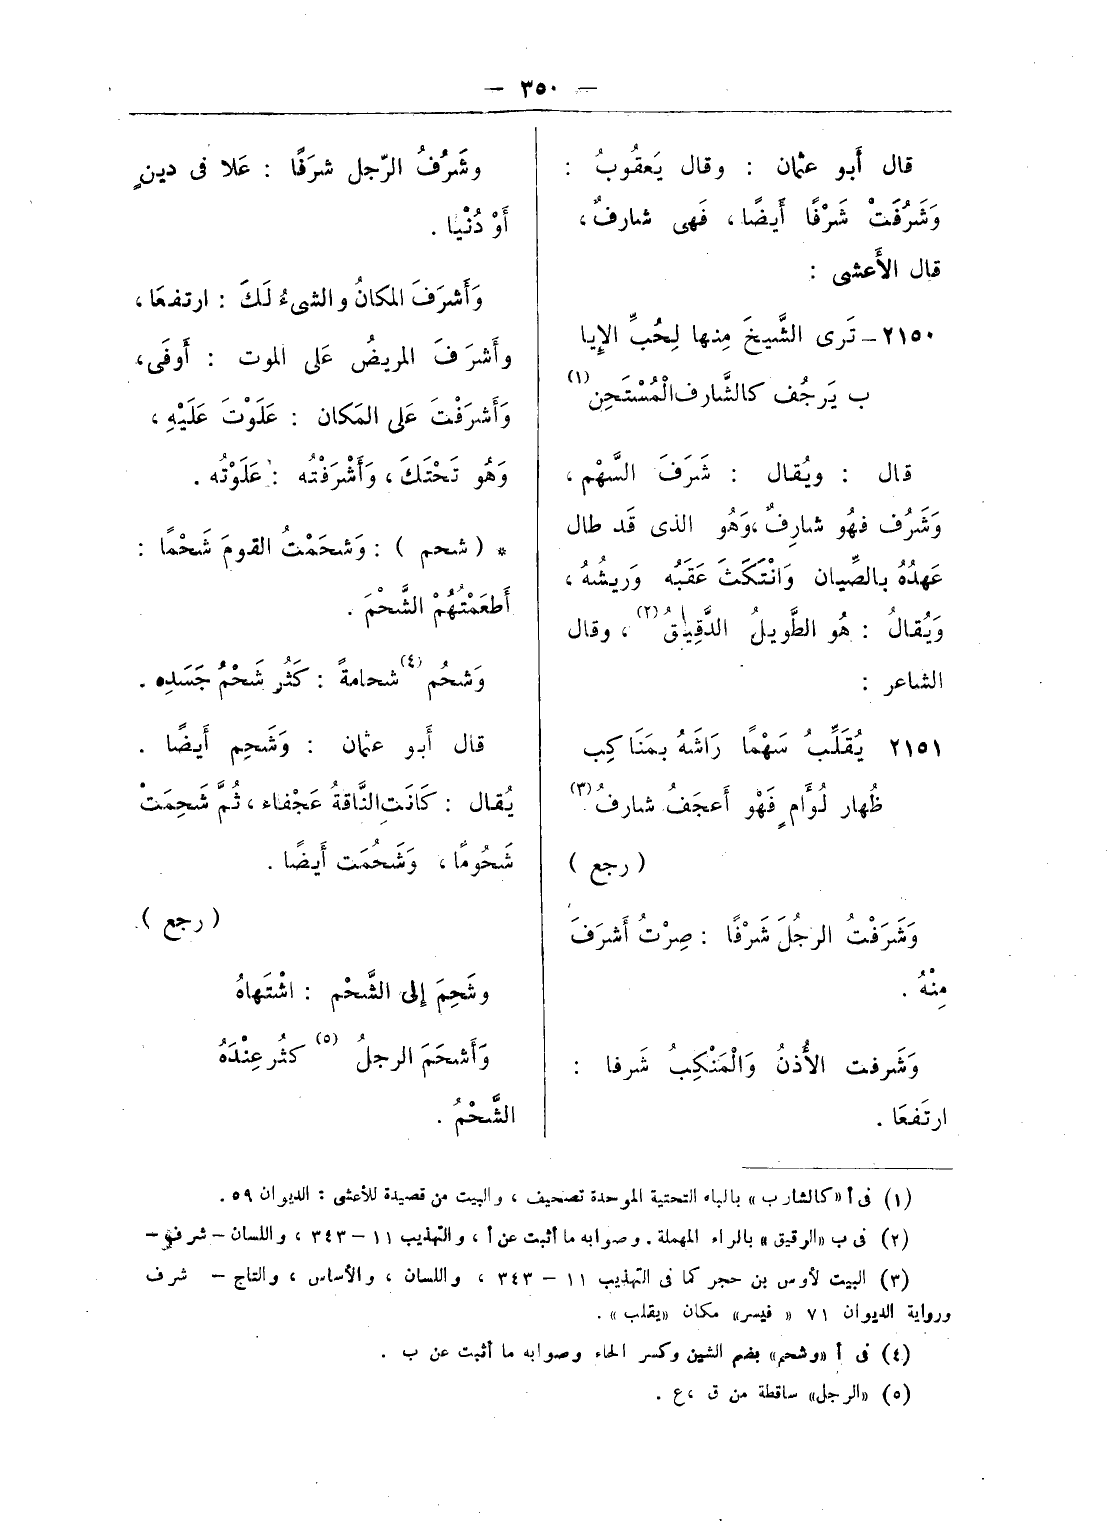 — ٣٥٠ —
قال أبو عثمان : وقال يَعقُوبُ :
وَشَرُفَتْ شَرْفًا أَيضًا ، فَهى شارفٌ ،
قال الأَعشى :
٢١٥٠ــ تَرى الشَّيخَ مِنها لِحُبِّ الإِيا
ب يَرجُف كالشَّارف الْمُسْتَحِن (١)
قال : ويُقال : شَرَفَ السَّهْم ،
وَشَرُف فهُو شارِفٌ ، وَهُو الذى قَد طال
عَهدُهُ بالصِّيان وَانْتَكَثَ عَقَبُه وَريشُهُ ،
وَيُقالُ : هُو الطَّويلُ الدَّقِيقُ (٢) ، وقال
الشاعر :
٢١٥١ يُقَلِّبُ سَهْمًا رَاشَهُ بمَنَاكِب
ظُهار لُوَّام فَهْو أَعجَفُ شارفُ (٣)
( رجع )
وَشَرَفْتُ الرجُلَ شَرْفًا : صِرْتُ أَشرَفَ
مِنْهُ .
وَشَرفت الأُذنُ وَالْمَنْكِبُ شَرفا :
ارتَفعَا .
وشَرُفُ الرّجل شرَفًا : عَلا فى دينٍ
أَوْ دُنْيا .
وَأَشرَفَ المكانُ والشىءُ لَكَ : ارتفعَا ،
وأَشرَفَ المريضُ عَلى الموت : أَوفَى ،
وَأَشرَفْتَ عَلى المَكان : عَلَوْتَ عَلَيْهِ ،
وَهُو تَحْتَكَ ، وَأَشْرَفْتُه : عَلَوْتُه .
* ( شحم ) : وَشحَمْتُ القومَ شَحْمًا :
أَطعَمْتُهُمْ الشَّحْمَ .
وَشحُم (٤) شحامةً : كَثُر شَحْمُ جَسَدِه .
قال أَبو عثمان : وَشَحِم أَيضًا .
يُقال : كَانَت النَّاقةُ عَجْفاء ، ثُمَّ شَحِمَتْ
شَحُومًا ، وَشَحُمَت أَيضًا .
( رجع )
وشَحِمَ إِلى الشَّحْم : اشْتَهاهُ
وَأَشحَمَ الرجلُ (٥) كثُر عِنْدَهُ
الشَّحْمُ .
(١) فى أ «كالشارب» بالباء التحتية الموحدة تصحيف ، والبيت من قصيدة للأعشى : الديوان ٥٩ .
(٢) فى ب «الرقيق» بالراء المهملة . وصوابه ما أثبت عن أ ، والتهذيب ١١ – ٣٤٣ ، واللسان – شرف –
(٣) البيت لأوس بن حجر كما فى التهذيب ١١ – ٣٤٣ ، واللسان ، والأساس ، والتاج – شرف
ورواية الديوان ٧١ « فيسر» مكان «يقلب» .
(٤) فى أ «وشحم» بضم الشين وكسر الحاء وصوابه ما أثبت عن ب .
(٥) «الرجل» ساقطة من ق ، ع .